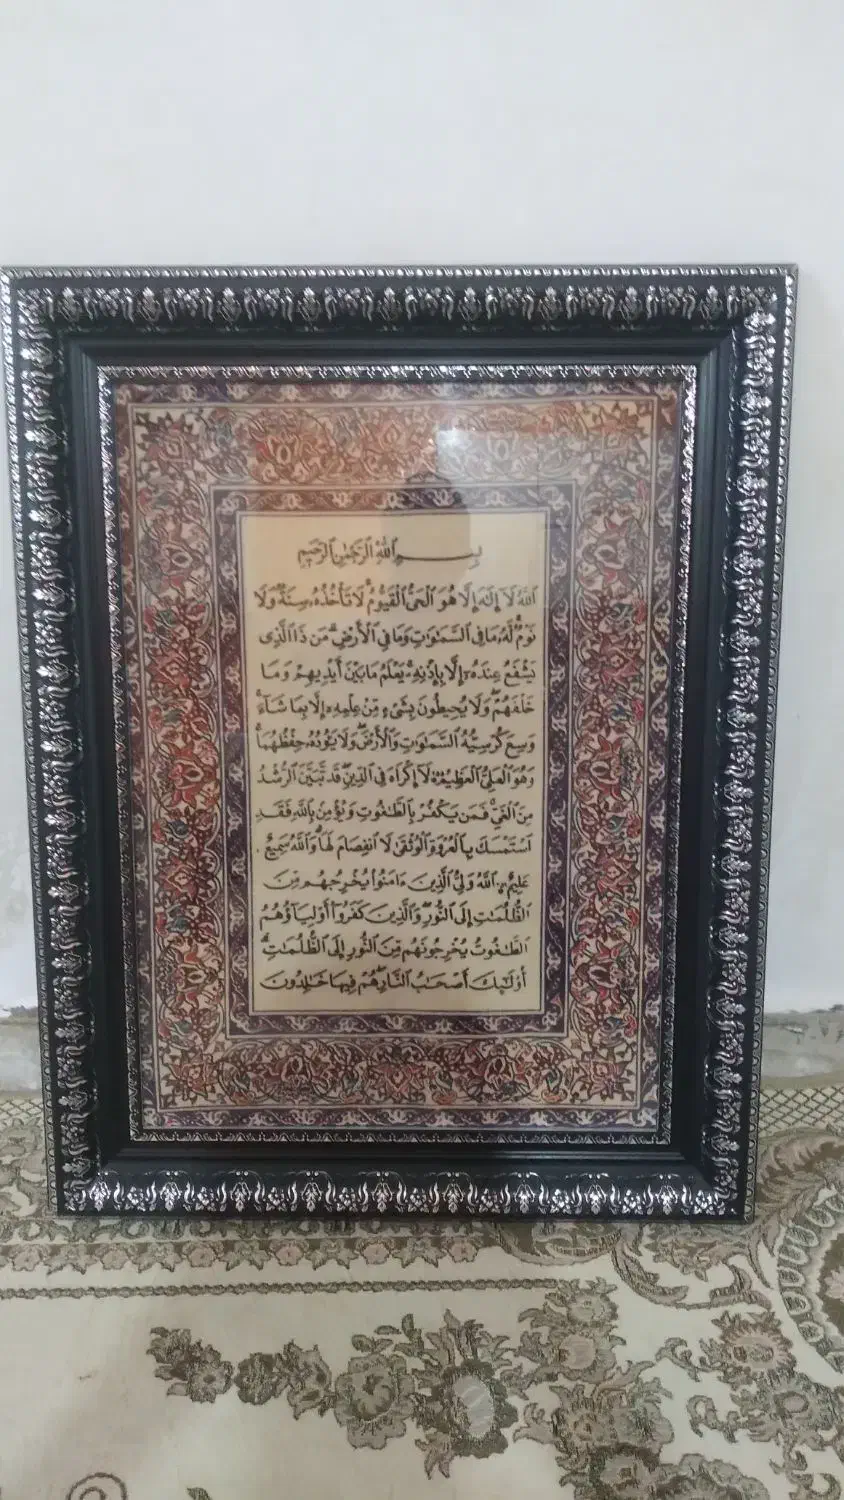 بِسْمِ ٱللَّهِ ٱلرَّحْمَٰنِ ٱلرَّحِيمِ
ٱللَّهُ لَا إِلَٰهَ إِلَّا هُوَ ٱلْحَىُّ ٱلْقَيُّومُ لَا تَأْخُذُهُۥ سِنَةٌ وَلَا
نَوْمٌ لَّهُۥ مَا فِى ٱلسَّمَٰوَٰتِ وَمَا فِى ٱلْأَرْضِ مَن ذَا ٱلَّذِى
يَشْفَعُ عِندَهُۥٓ إِلَّا بِإِذْنِهِۦ يَعْلَمُ مَا بَيْنَ أَيْدِيهِمْ وَمَا
خَلْفَهُمْ وَلَا يُحِيطُونَ بِشَىْءٍ مِّنْ عِلْمِهِۦٓ إِلَّا بِمَا شَآءَ
وَسِعَ كُرْسِيُّهُ ٱلسَّمَٰوَٰتِ وَٱلْأَرْضَ وَلَا يَـُٔودُهُۥ حِفْظُهُمَا
وَهُوَ ٱلْعَلِىُّ ٱلْعَظِيمُ لَآ إِكْرَاهَ فِى ٱلدِّينِ قَد تَّبَيَّنَ ٱلرُّشْدُ
مِنَ ٱلْغَىِّ فَمَن يَكْفُرْ بِٱلطَّٰغُوتِ وَيُؤْمِنۢ بِٱللَّهِ فَقَدِ
ٱسْتَمْسَكَ بِٱلْعُرْوَةِ ٱلْوُثْقَىٰ لَا ٱنفِصَامَ لَهَا وَٱللَّهُ سَمِيعٌ
عَلِيمٌ ٱللَّهُ وَلِىُّ ٱلَّذِينَ ءَامَنُوا۟ يُخْرِجُهُم مِّنَ
ٱلظُّلُمَٰتِ إِلَى ٱلنُّورِ وَٱلَّذِينَ كَفَرُوٓا۟ أَوْلِيَآؤُهُمُ
ٱلطَّٰغُوتُ يُخْرِجُونَهُم مِّنَ ٱلنُّورِ إِلَى ٱلظُّلُمَٰتِ
أُو۟لَٰٓئِكَ أَصْحَٰبُ ٱلنَّارِ هُمْ فِيهَا خَٰلِدُونَ